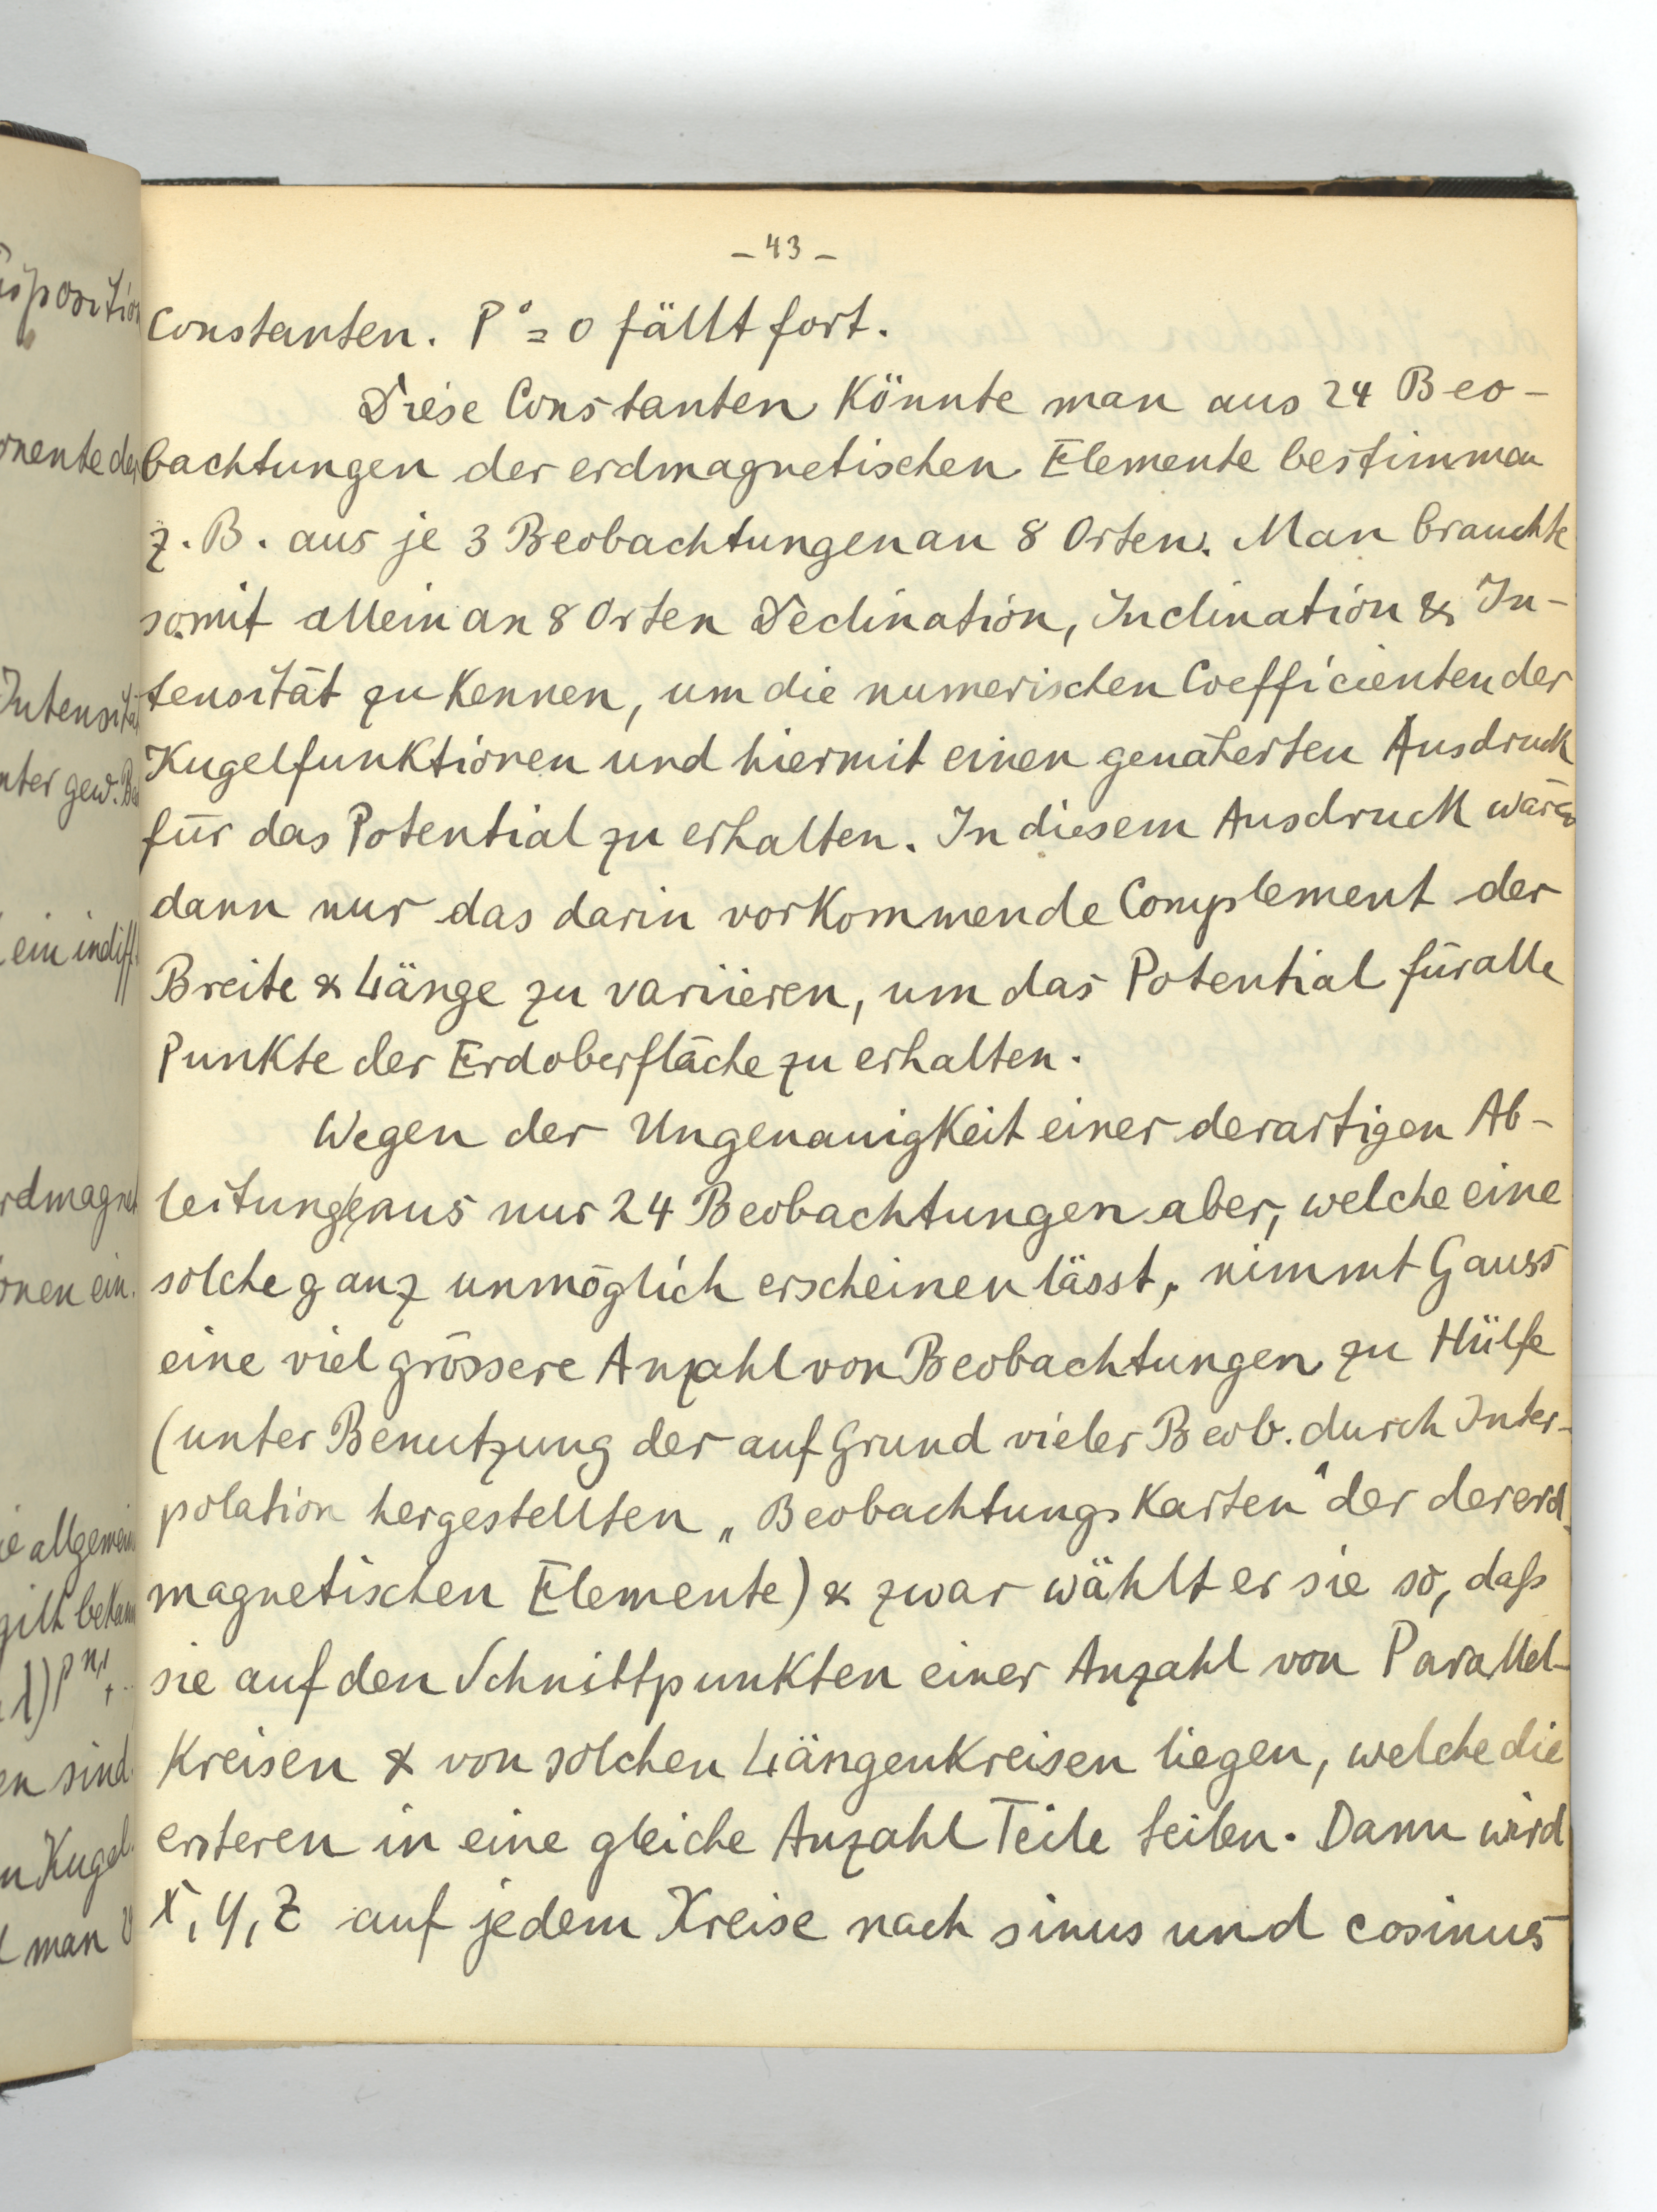 - 43 -
Constanten. P° = 0 fällt fort.
Diese Constanten Könnte man aus 24 Beo-
bachtungen der erdmagnetischen Elemente bestimmen
z. B. aus je 3 Beobachtungen an 8 Orten. Man brauchte
somit allein an 8 Orten Declination, Inclination & In-
tensität zu Kennen, um die numerischen Coefficienten der
Kugelfunktionen und hiermit einen genäherten Ausdruck
für das Potential zu erhalten. In diesem Ausdruck wären
dann nur das darin vorKommende Complement der
Breite & Länge zu variieren, um das Potential für alle
Punkte der Erdoberfläche zu erhalten.
Wegen der Ungenauigkeit einer derartigen Ab-
leitung aus nur 24 Beobachtungen aber, welche eine
solche ganz unmöglich erscheinen lässt, nimmt Gauss
eine viel grössere Anzahl von Beobachtungen zu Hülfe
(unter Benutzung der auf Grund vieler Beob. durch Inter-
polation hergestellten „Beobachtungskarten" der der erd-
magnetischen Elemente) & zwar wählt er sie so, daß
sie auf den Schnittpunkten einer Anzahl von Parallel-
Kreisen & von solchen LängenKreisen liegen, welche die
ersteren in eine gleiche Anzahl Teile teilen. Dann wird
X, Y, Z auf jedem Kreise nach sinus und cosinus